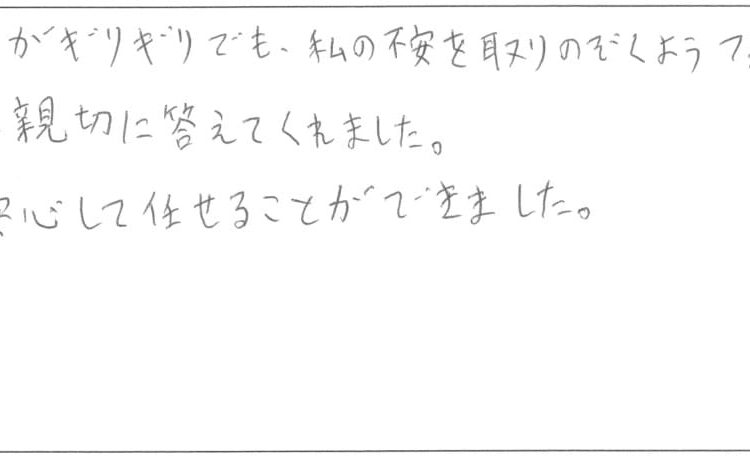 がギリギリでも、私の不安を取りのぞくよう
親切に答えてくれました。
心して任せることができました。